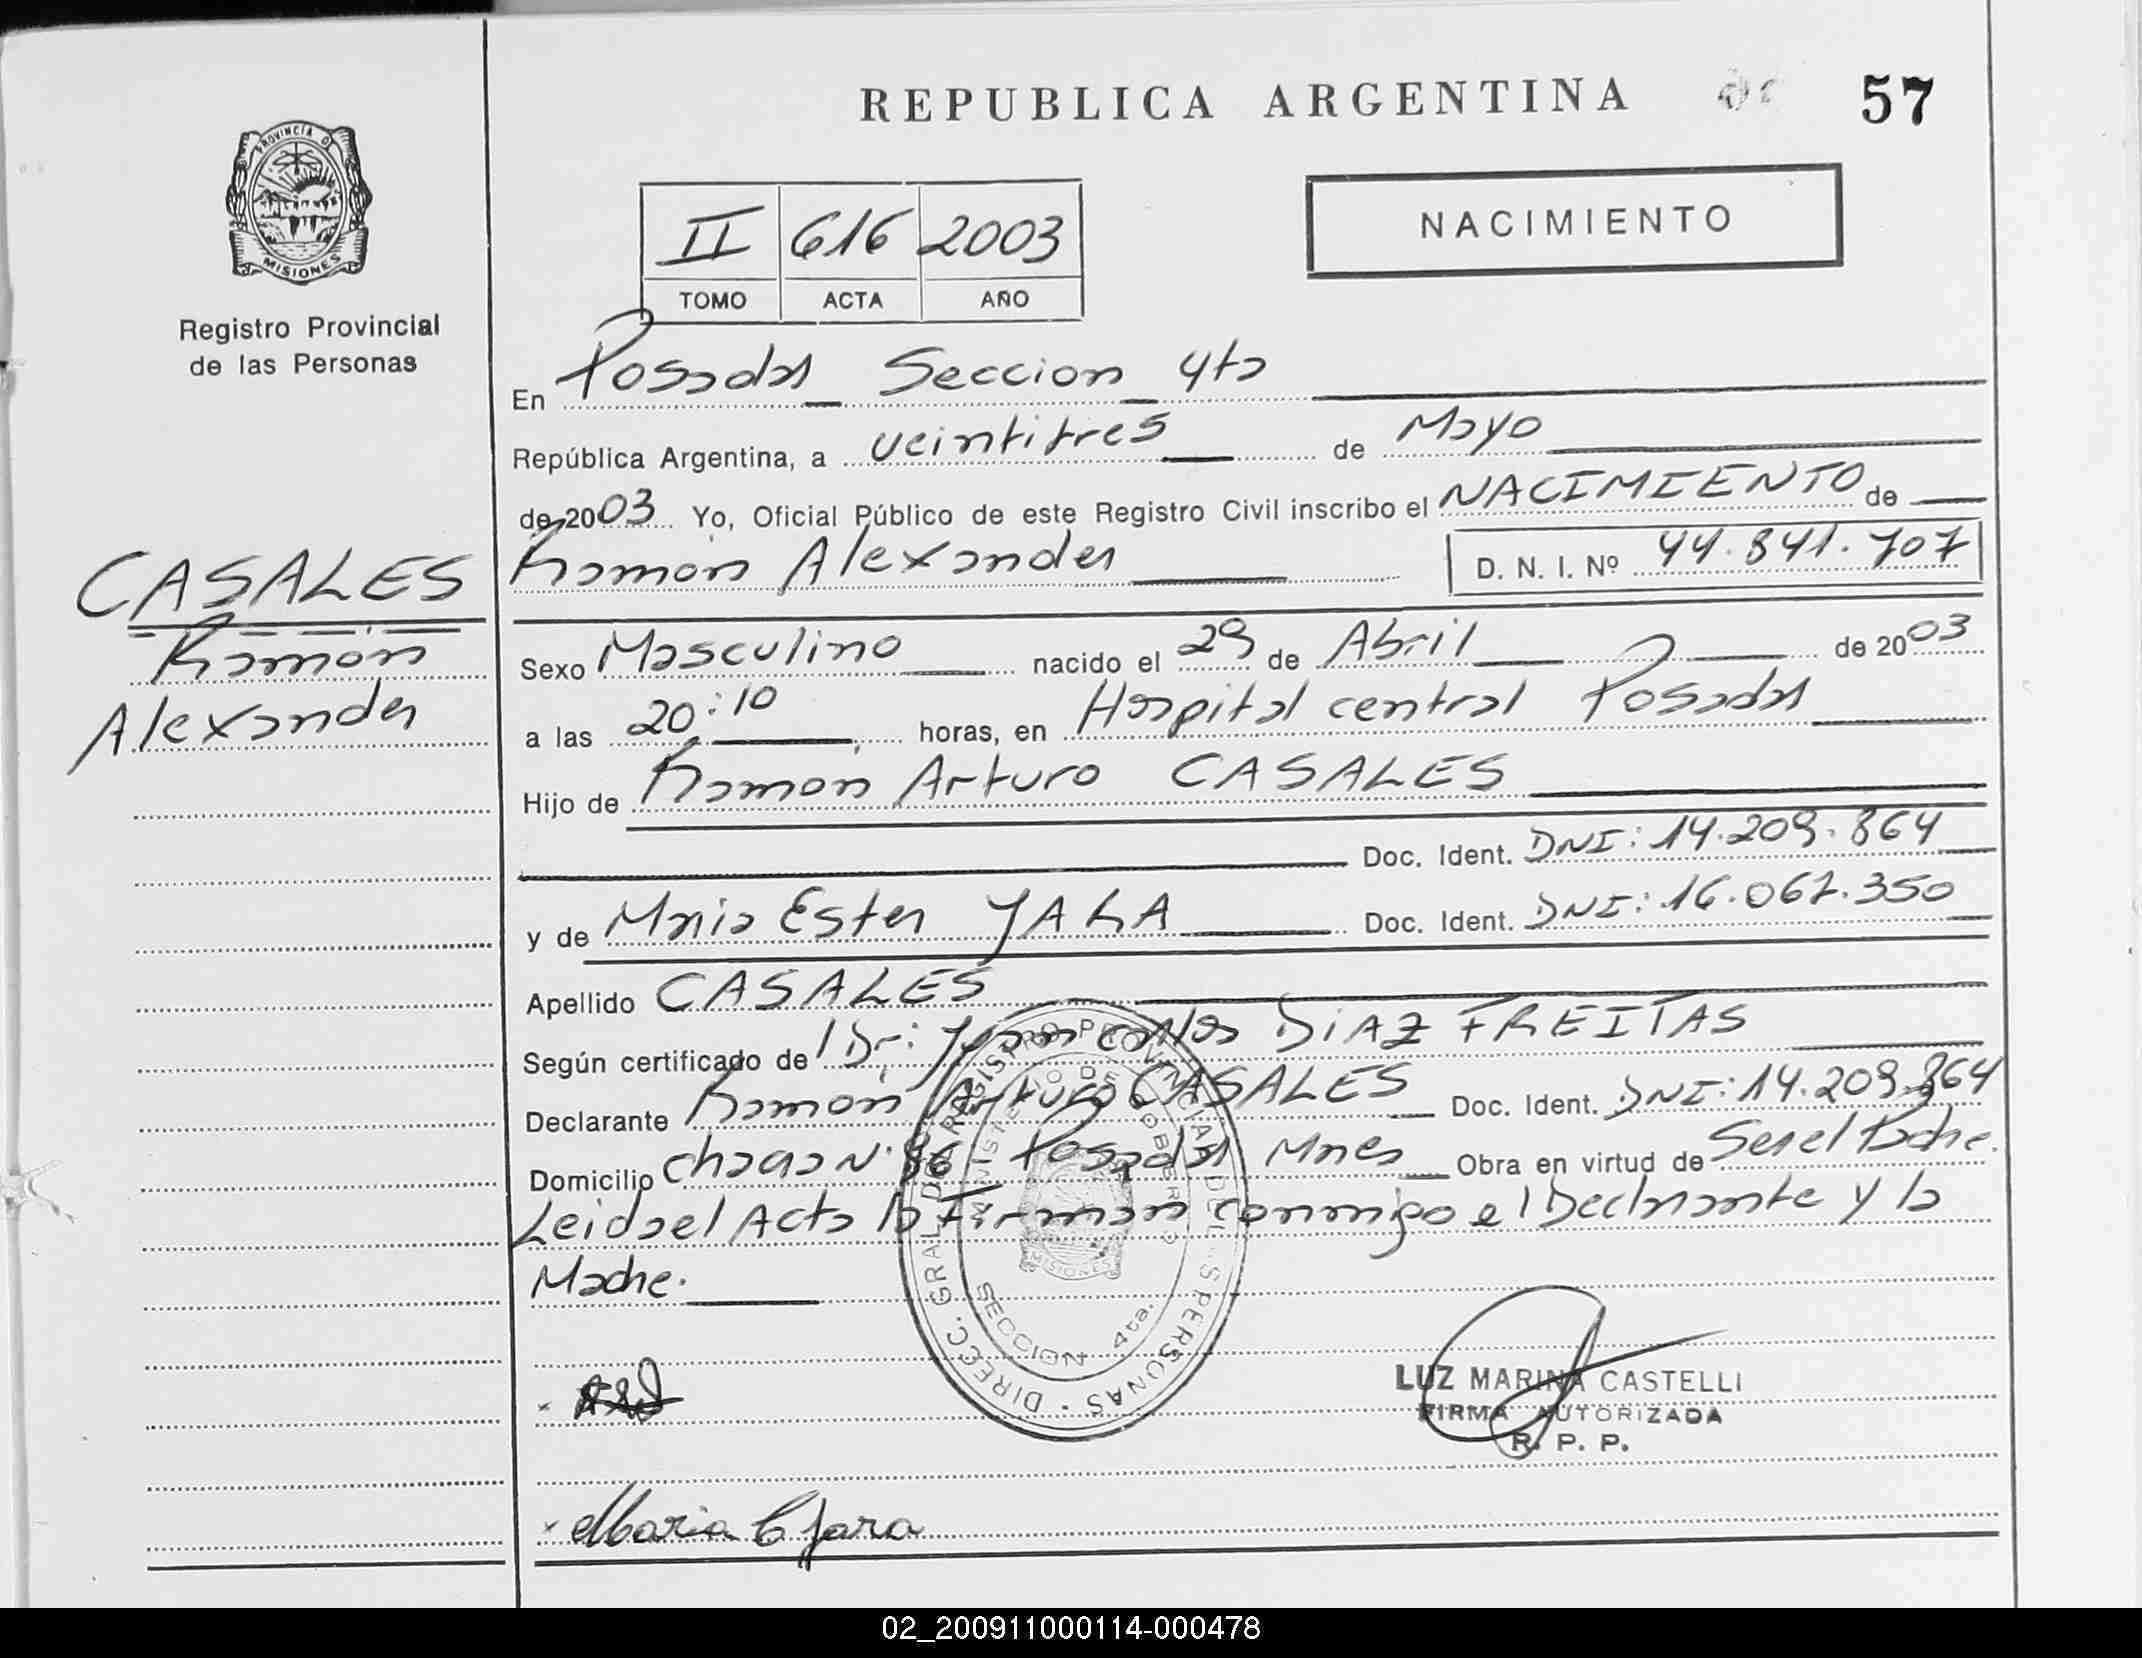 REPUBLICA ARGENTINA
57
PROVINCIA DE
MISIONES
Registro Provincial
de las Personas
II 616 2003
TOMO ACTA AÑO
NACIMIENTO
En Posadas Seccion 4ta
República Argentina, a veintitres de Mayo
de 2003 Yo, Oficial Público de este Registro Civil inscribo el NACIMIENTO de
Ramón Alexander D. N. I. Nº 44.841.707
CASALES
Ramón
Alexander
Sexo Masculino nacido el 29 de Abril de 2003
a las 20:10 horas, en Hospital central Posadas
Hijo de Ramon Arturo CASALES
Doc. Ident. DNI: 14.209.864
y de Maria Ester JARA Doc. Ident. DNI: 16.067.350
Apellido CASALES
Según certificado de Dr: Juan carlos DIAZ FREITAS
Declarante Ramón Arturo CASALES Doc. Ident. DNI: 14.209.864
Domicilio chacra Nº 86 Posadas Mnes Obra en virtud de Ser el Padre.
Leida el Acta la Firman conmigo el Declarante y la
Madre.
DIREC. GRAL. DEL REGISTRO PROVINCIAL DE LAS PERSONAS
MINISTERIO DE GOBIERNO
MISIONES
SECCION 4ta.
LUZ MARINA CASTELLI
FIRMA AUTORIZADA
R. P. P.
Maria E Jara
02_200911000114-000478